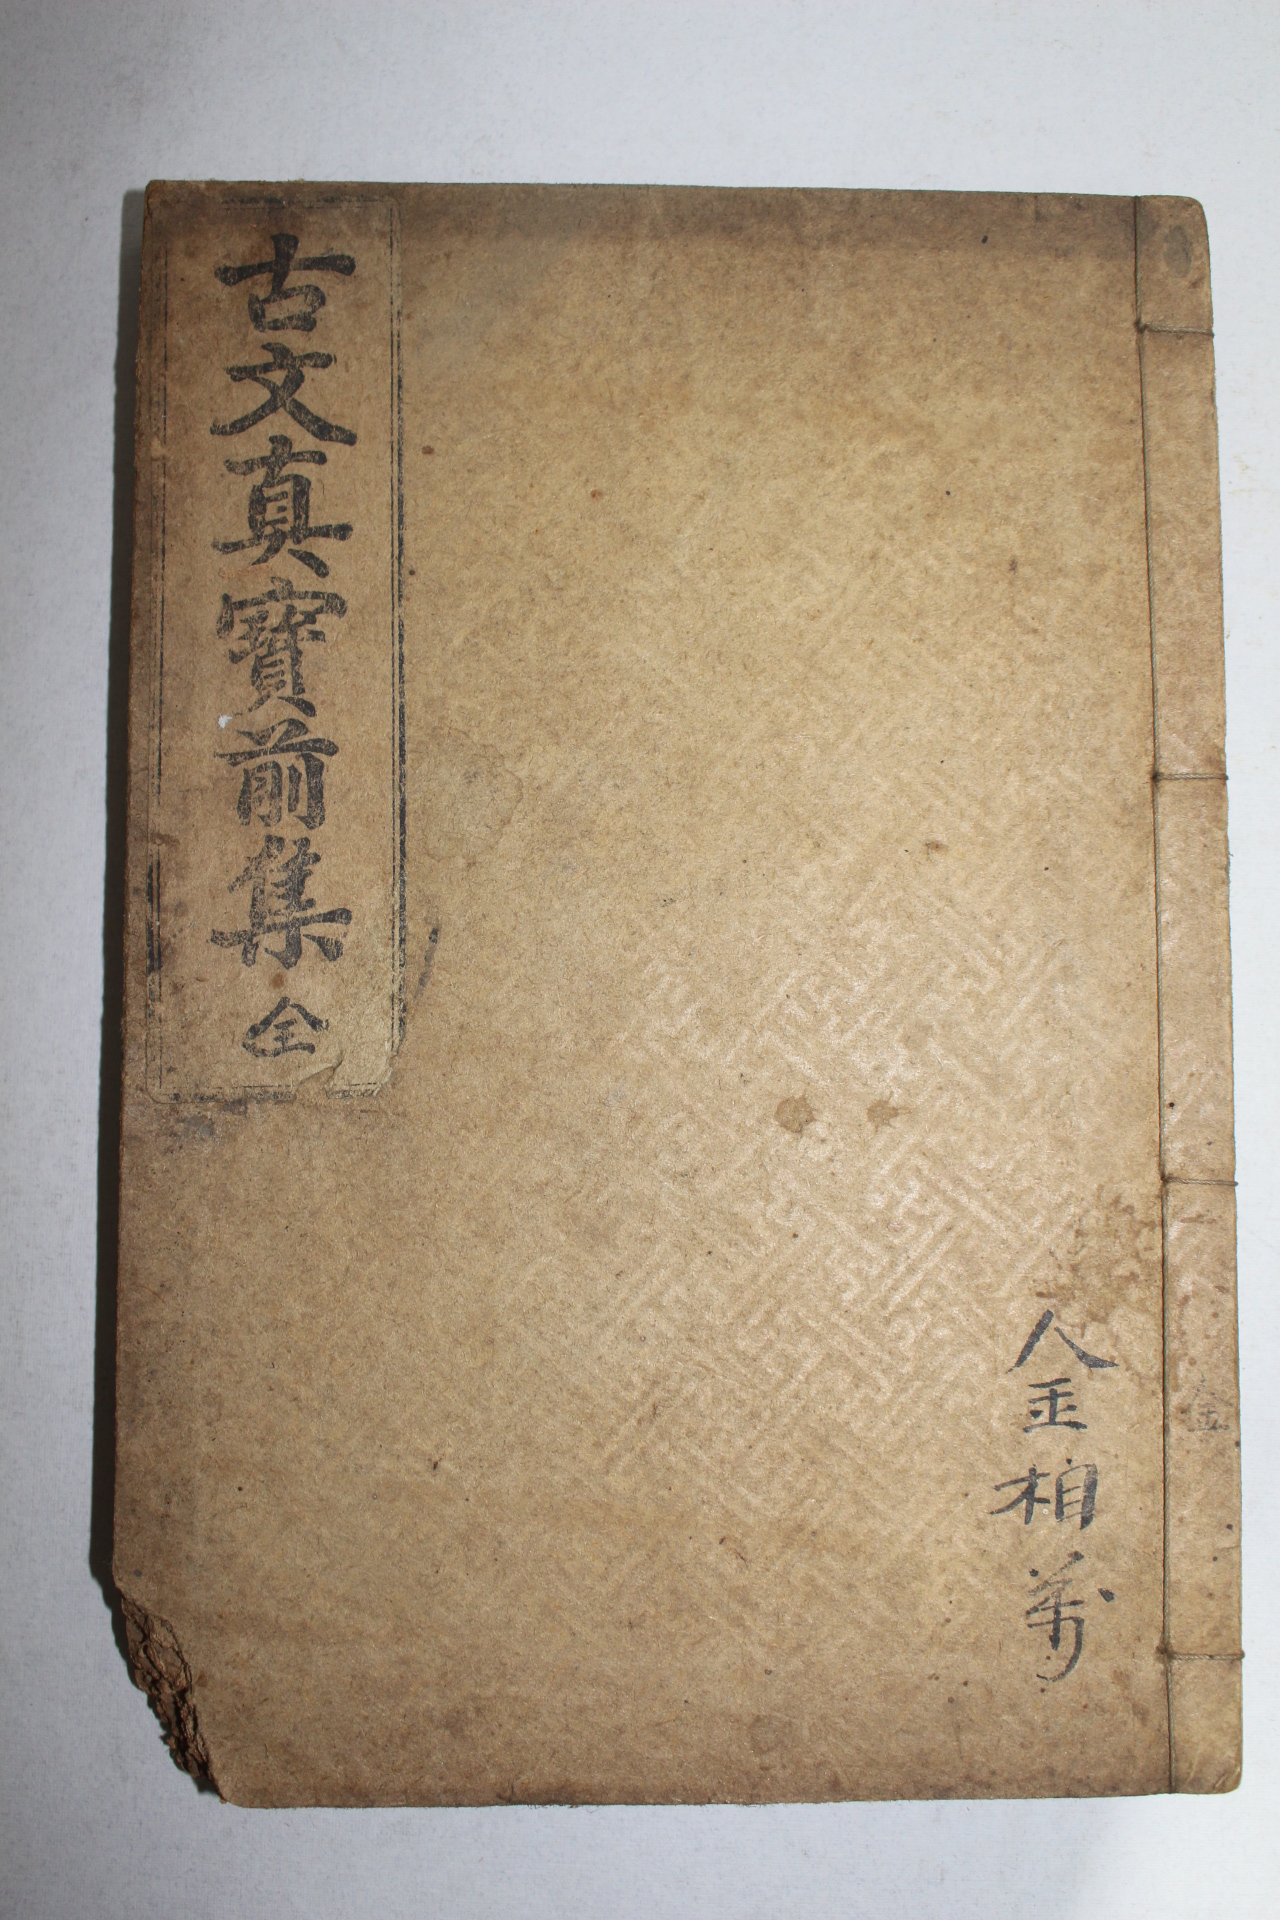 古文真寶前集 全
金相萬
金